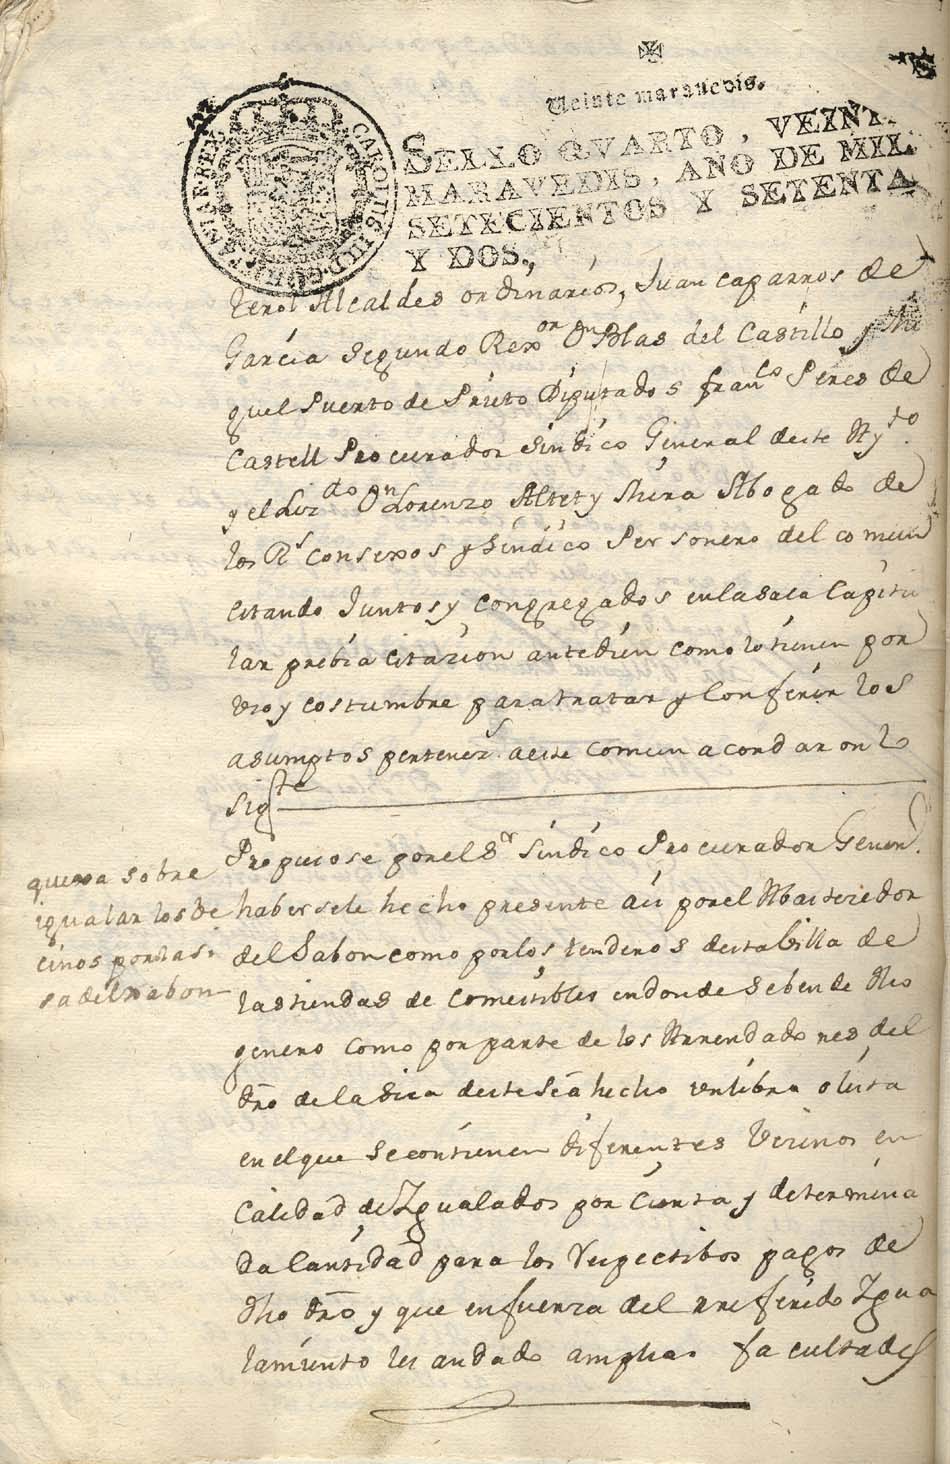 Veinte maravedis.
SELLO QVARTO, VEINTE
MARAVEDIS, AÑO DE MIL
SETECIENTOS Y SETENTA
Y DOS.
CAROLUS III D G HISPANIAR REX
Alcaldes ordinarios, Juan caparros de
Garcia segundo Rexor Dn Blas del Castillo y Mi
guel Puerto de Prieto Diputados franco Peres de
Castell Procurador Sindico General deste Aymto
y el Lizdo Dn Lorenzo Altet y Abogado de
los Rs consexos y Sindico Personero del comun
estando Juntos y congregados enlasala Capitu
lar prebia citazion antedien como lo tienen por
vso y costumbre para tratar y Conferir los
asumptos pertenezs aeste comun acordaron lo
Sigte
Propusose porel Sr Sindico Procurador Generl
habersele hecho presente asi porel Abastezedor
del Sabon como porlos tenderos desta billa de
las tiendas de Comestibles endonde sebende dho
genero como por parte de los Arrendadores del
dro de la Sisa deste Sea hecho unlibro o lista
en el que secontienen diferentes Vezinos en
Calidad de Igualados por Cierta y determina
da Cantidad para los respectibos pagos de
dho dro y que enfuerza del rreferido Igua
lamiento les andado amplias facultades
quexa sobre
igualar los be
cinos por la si
sa del xabon